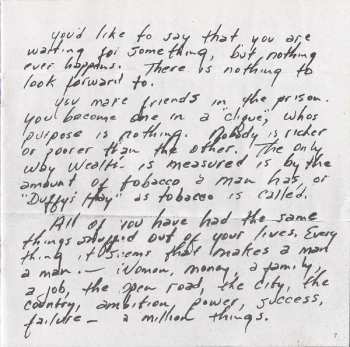 you'd like to say that you are
waiting for something, but nothing
ever happens. There is nothing to
look forward to.
you make friends in the prison.
you become one in a clique, whos
purpose is nothing. Nobody is richer
or poorer than the other. The only
way wealth is measured is by the
amount of tobacco a man has, or
"Duffy's Hay" as tobacco is called.
All of you have had the same
things snapped out of your lives. Every
thing it seems that makes a man
a man — Woman, money, a family,
a job, the open road, the city, the
country, ambition, power, success,
failure — a million things.